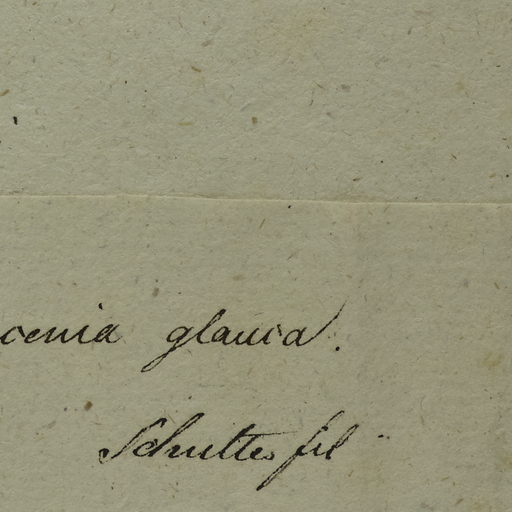 cenia glauca.
Schultes fil